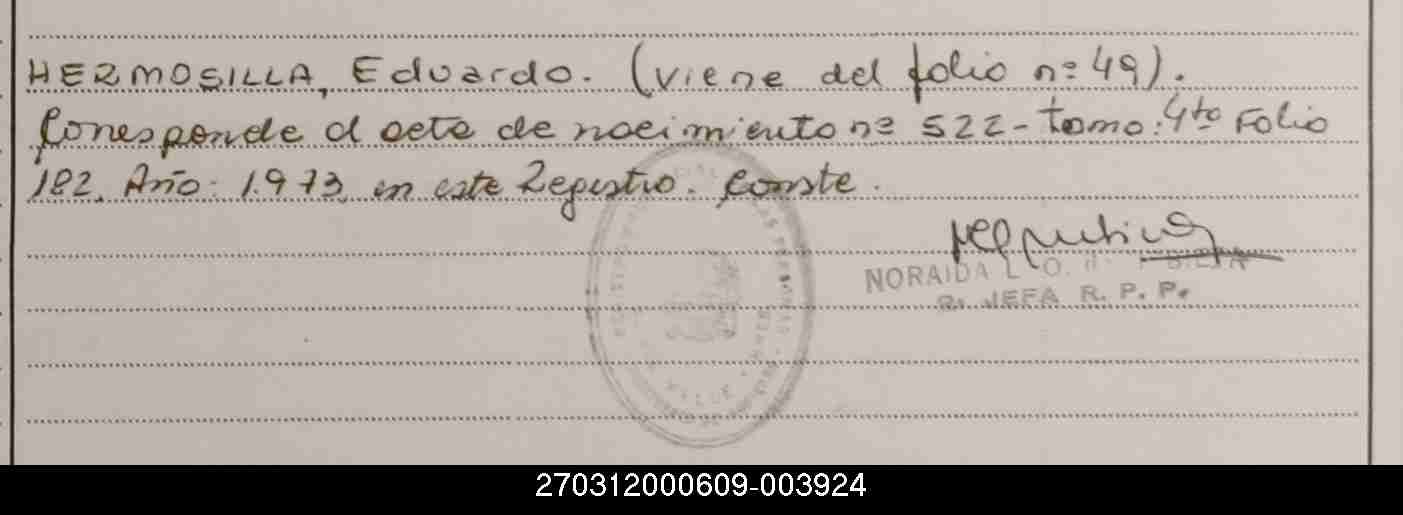 HERMOSILLA, Eduardo. (viene del folio nº 49).
Corresponde al acta de nacimiento nº 522 - tomo: 4to Folio
182. Año: 1.973 en este Registro. Conste.
NORAIDA L. O.
JEFA R. P. P.
270312000609-003924